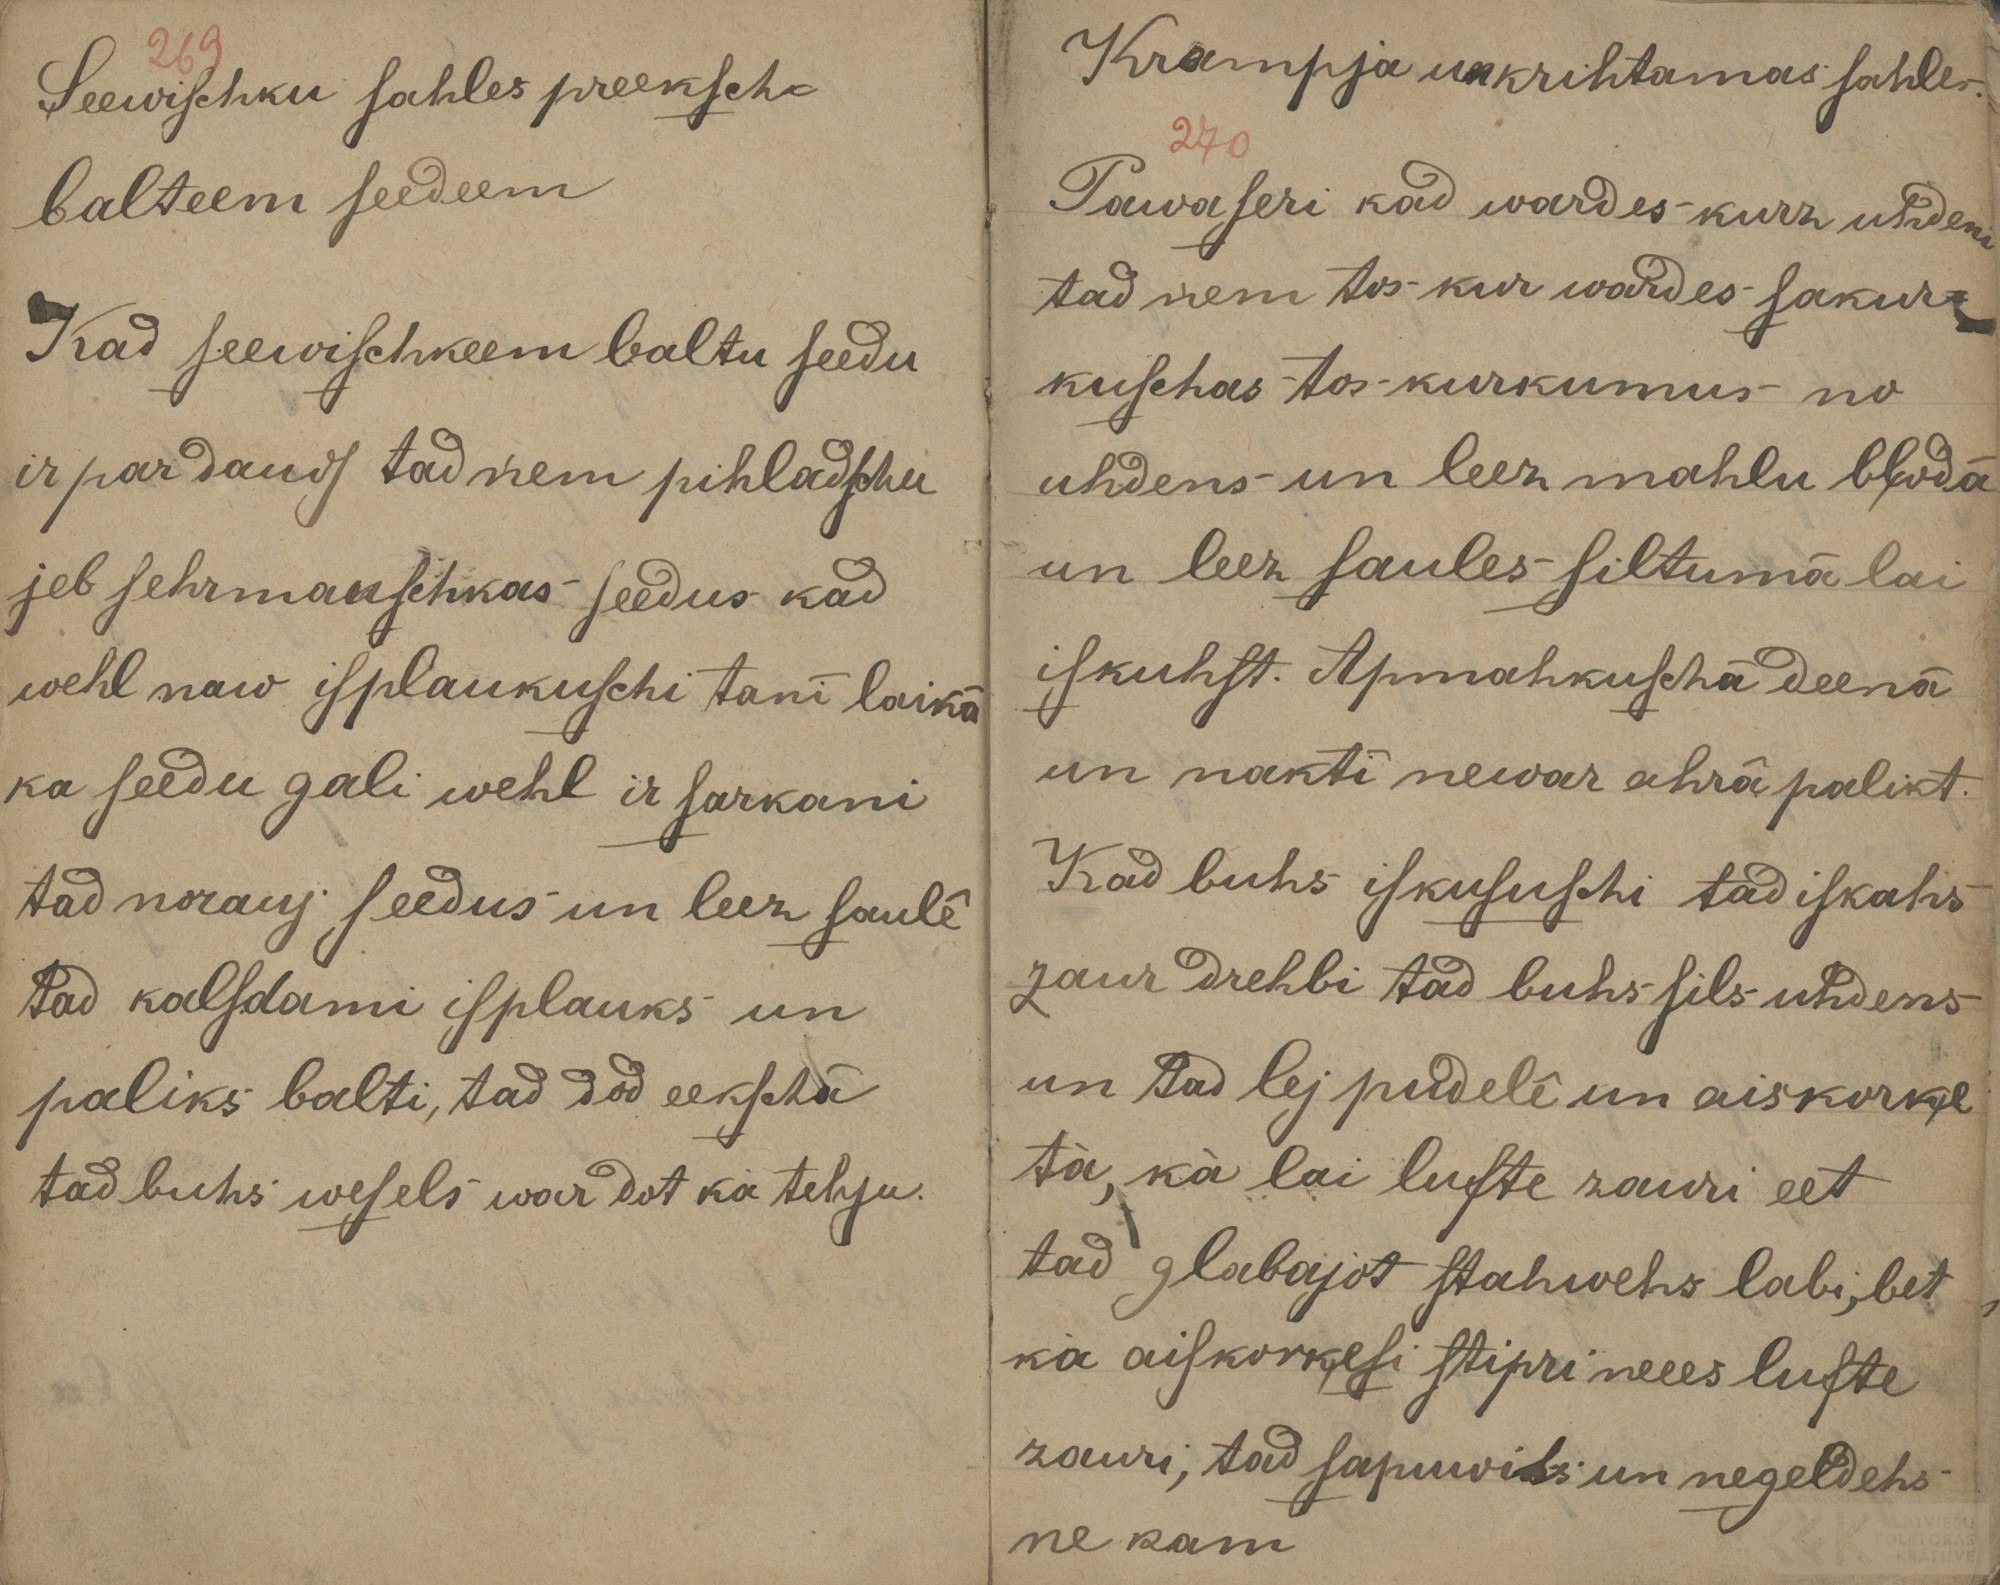 269
Seewiſchku ſahles preekſch-
balteem ſeedeem
Kad ſeewiſchkeem baltu ſeedu
ir par daudſ tad ņem pihladſchu
jeb ſehrmauſchkas ſeedus kad
wehl naw iſplaukuſchi tanī laikā
ka ſeedu gali wehl ir ſarkani
tad norauj ſeedus un leez ſaulê
tad kalſdami iſplauks un
paliks balti, tad dod eekſchā
tad buhs weſels war dot kà tehju.
Krampja un krihtamas ſahles.
270
Pawaſeri kad wardes kurz uhdeni
tad ņem tos kur wardes ſakur-
kuſchas tos kurkumus no
uhdens un leez mahlu bļodā
un leez ſaules ſiltumā lai
iſkuhſt. Apmahkuſchā deenā
un naktī newar ahrā palikt.
Kad buhs iſkuſuſchi tad iſkahs
zaur drehbi tad buhs ſils uhdens
un tad lej pudelê un aiskorķe
tà, kà lai lufte zauri eet
tad glabajot ſtahwehs labi, bet
kà aiſkorķeſi ſtipri neees lufte
zauri, tad ſapuwihs un negeldehs
ne kam
LATVIEŠU
FOLKLORAS
KRĀTUVE